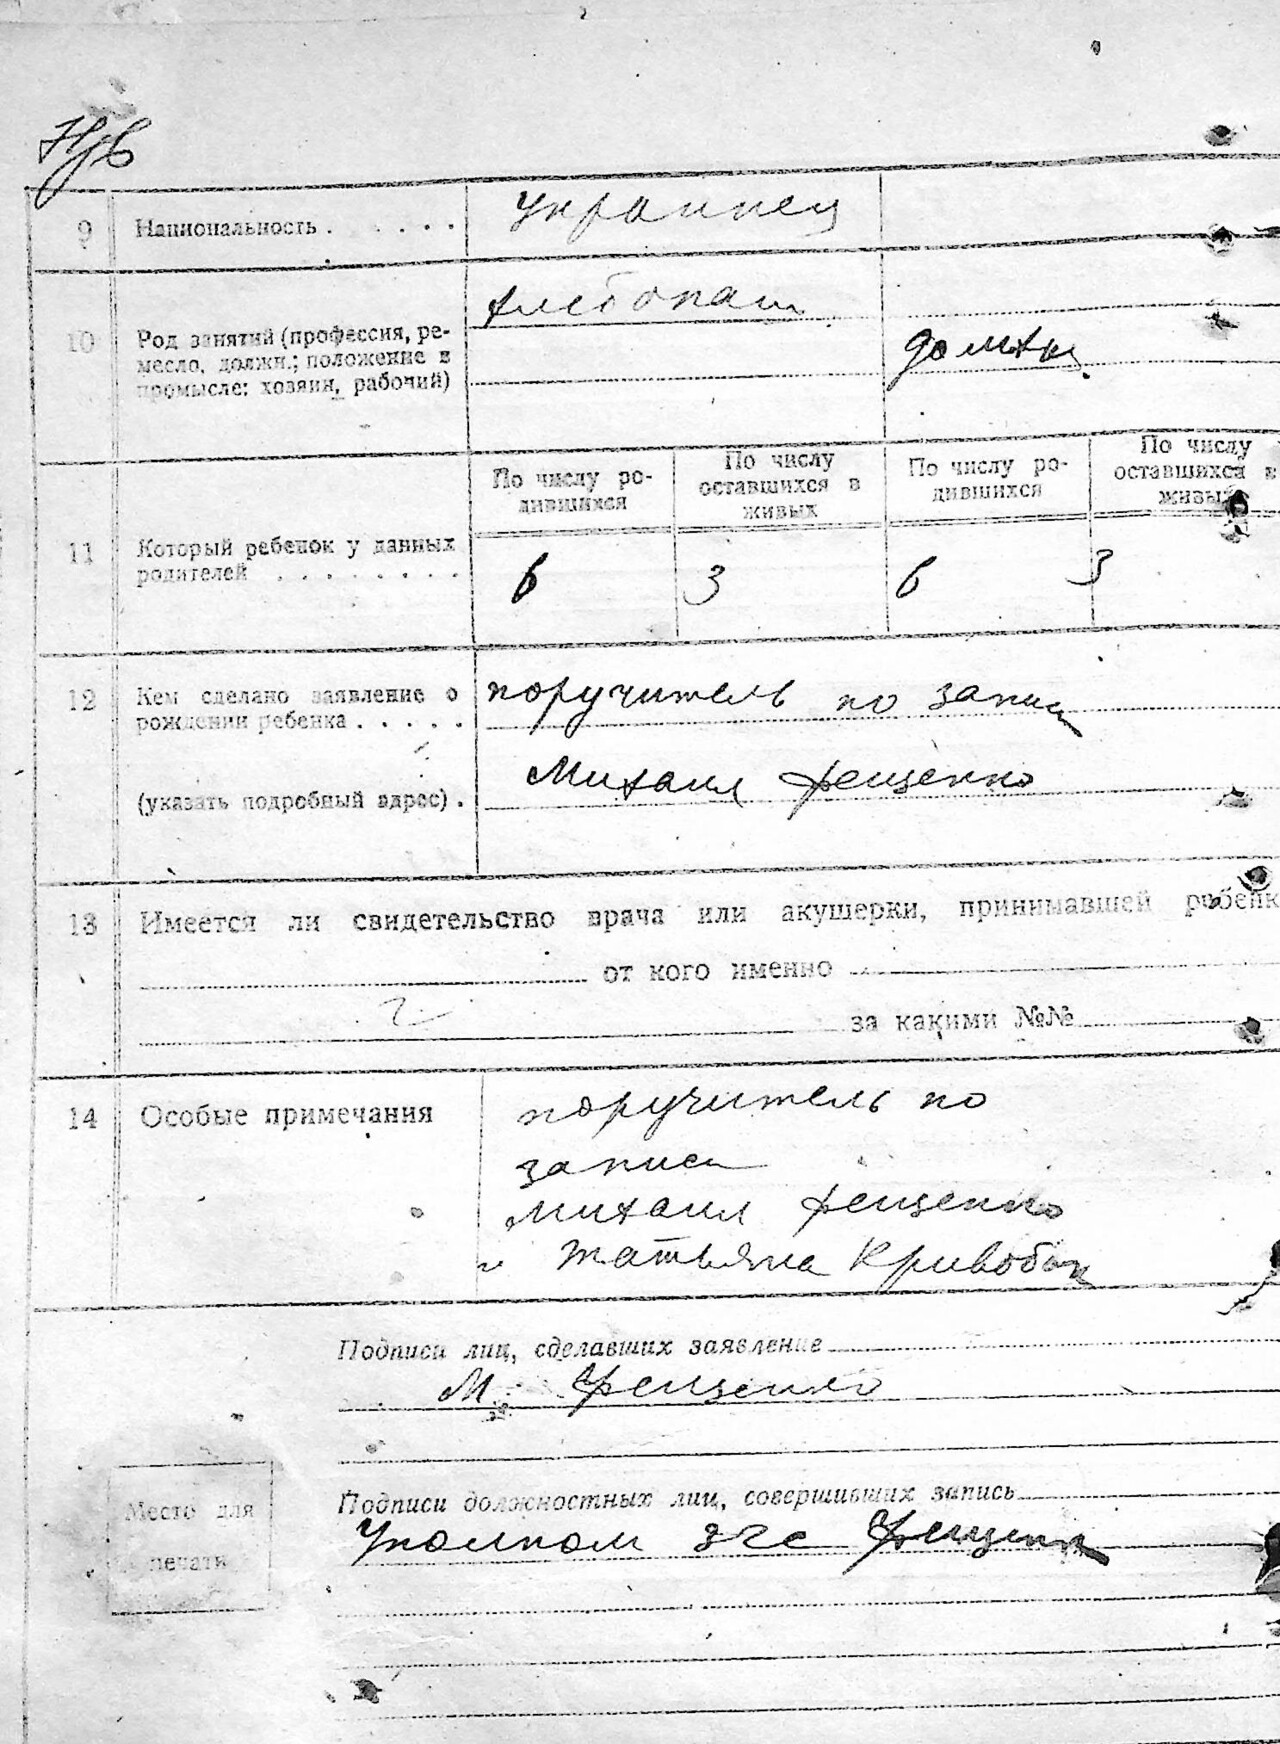 9 Национальность . . . . . . украинец
10 Род занятий (профессия, ре-
месло, должн.; положение в
промысле: хозяин, рабочий)
хлебопаш
домхоз
11 Который ребенок у данных
родителей . . . . . . . .
По числу ро-
дившихся
По числу
оставшихся в
живых
По числу ро-
дившихся
По числу
оставшихся в
живых
6 3 6 3
12 Кем сделано заявление о
рождении ребенка . . . . .
(указать подробный адрес) .
поручитель по записи
Михаил Фещенко
13 Имеется ли свидетельство врача или акушерки, принимавшей ребенк
от кого именно
за какими №№
14 Особые примечания
поручитель по
записи
Михаил Фещенко
и Татьяна
Подписи лиц, сделавших заявление
М Фещенко
Место для
печати
Подписи должностных лиц, совершивших запись
Фещенко